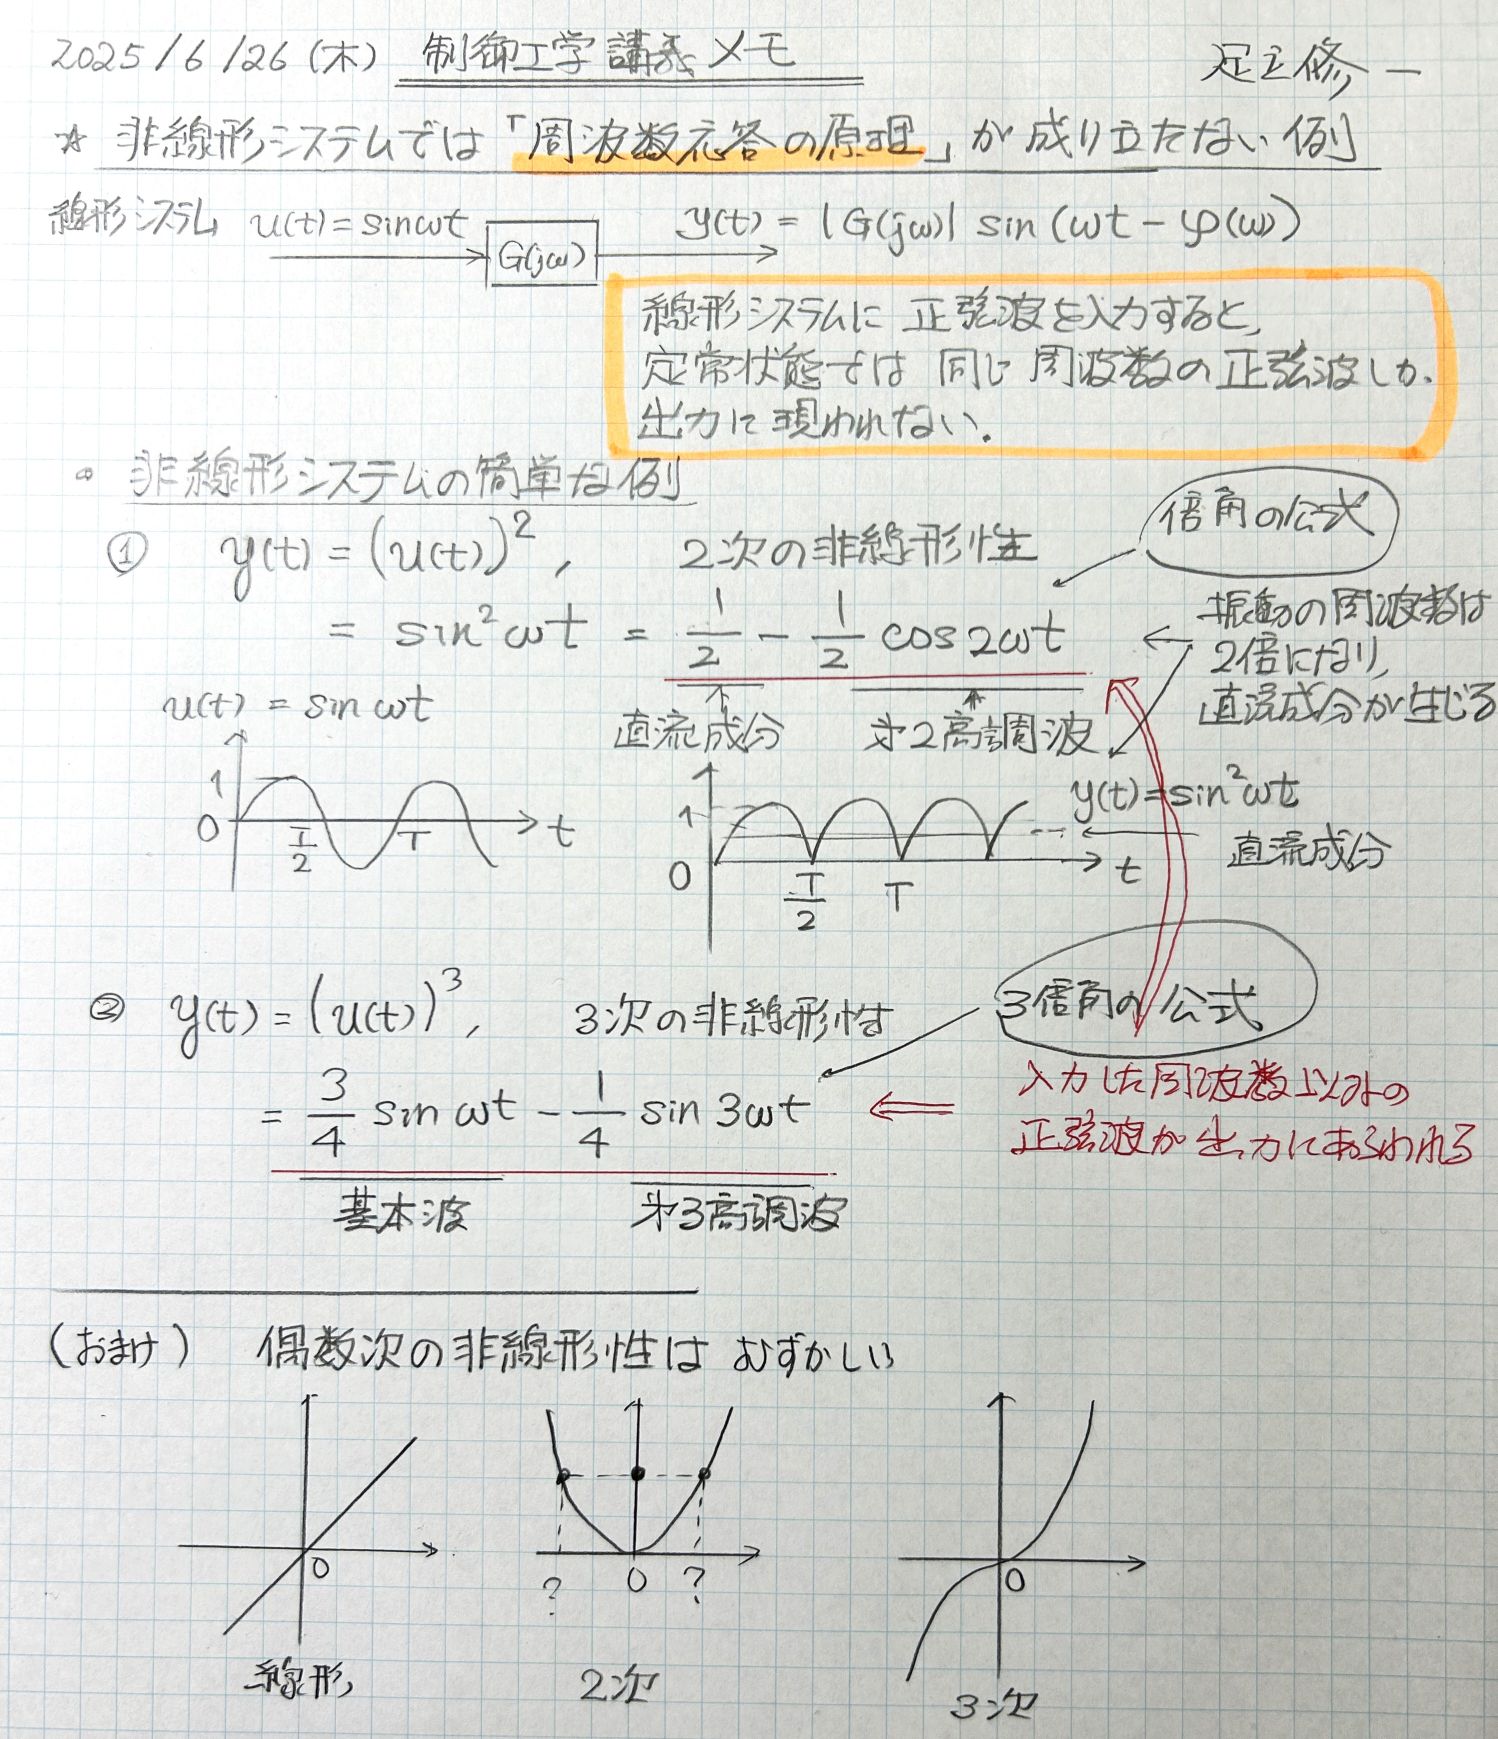 2025/6/26(木) 制御工学講義メモ 足立修一
☆ 非線形システムでは「周波数応答の原理」が成り立たない例
線形システム u(t)=sinωt G(jω) y(t)=|G(jω)| sin(ωt-φ(ω))
線形システムに正弦波を入力すると,
定常状態では同じ周波数の正弦波しか
出力に現われない.
○ 非線形システムの簡単な例
① y(t)=(u(t))², 2次の非線形性
倍角の公式
= sin²ωt = 1/2 - 1/2 cos2ωt
振動の周波数は
2倍になり,
直流成分が生じる
直流成分 第2高調波
u(t)=sinωt
1 0 T/2 T t
y(t)=sin²ωt
1 0 T/2 T t
直流成分
② y(t)=(u(t))³, 3次の非線形性
3倍角の公式
= 3/4 sinωt - 1/4 sin3ωt
入力した周波数以外の
正弦波が出力にあらわれる
基本波 第3高調波
(おまけ) 偶数次の非線形性はむずかしい
0 ? 0 ? 0
線形 2次 3次